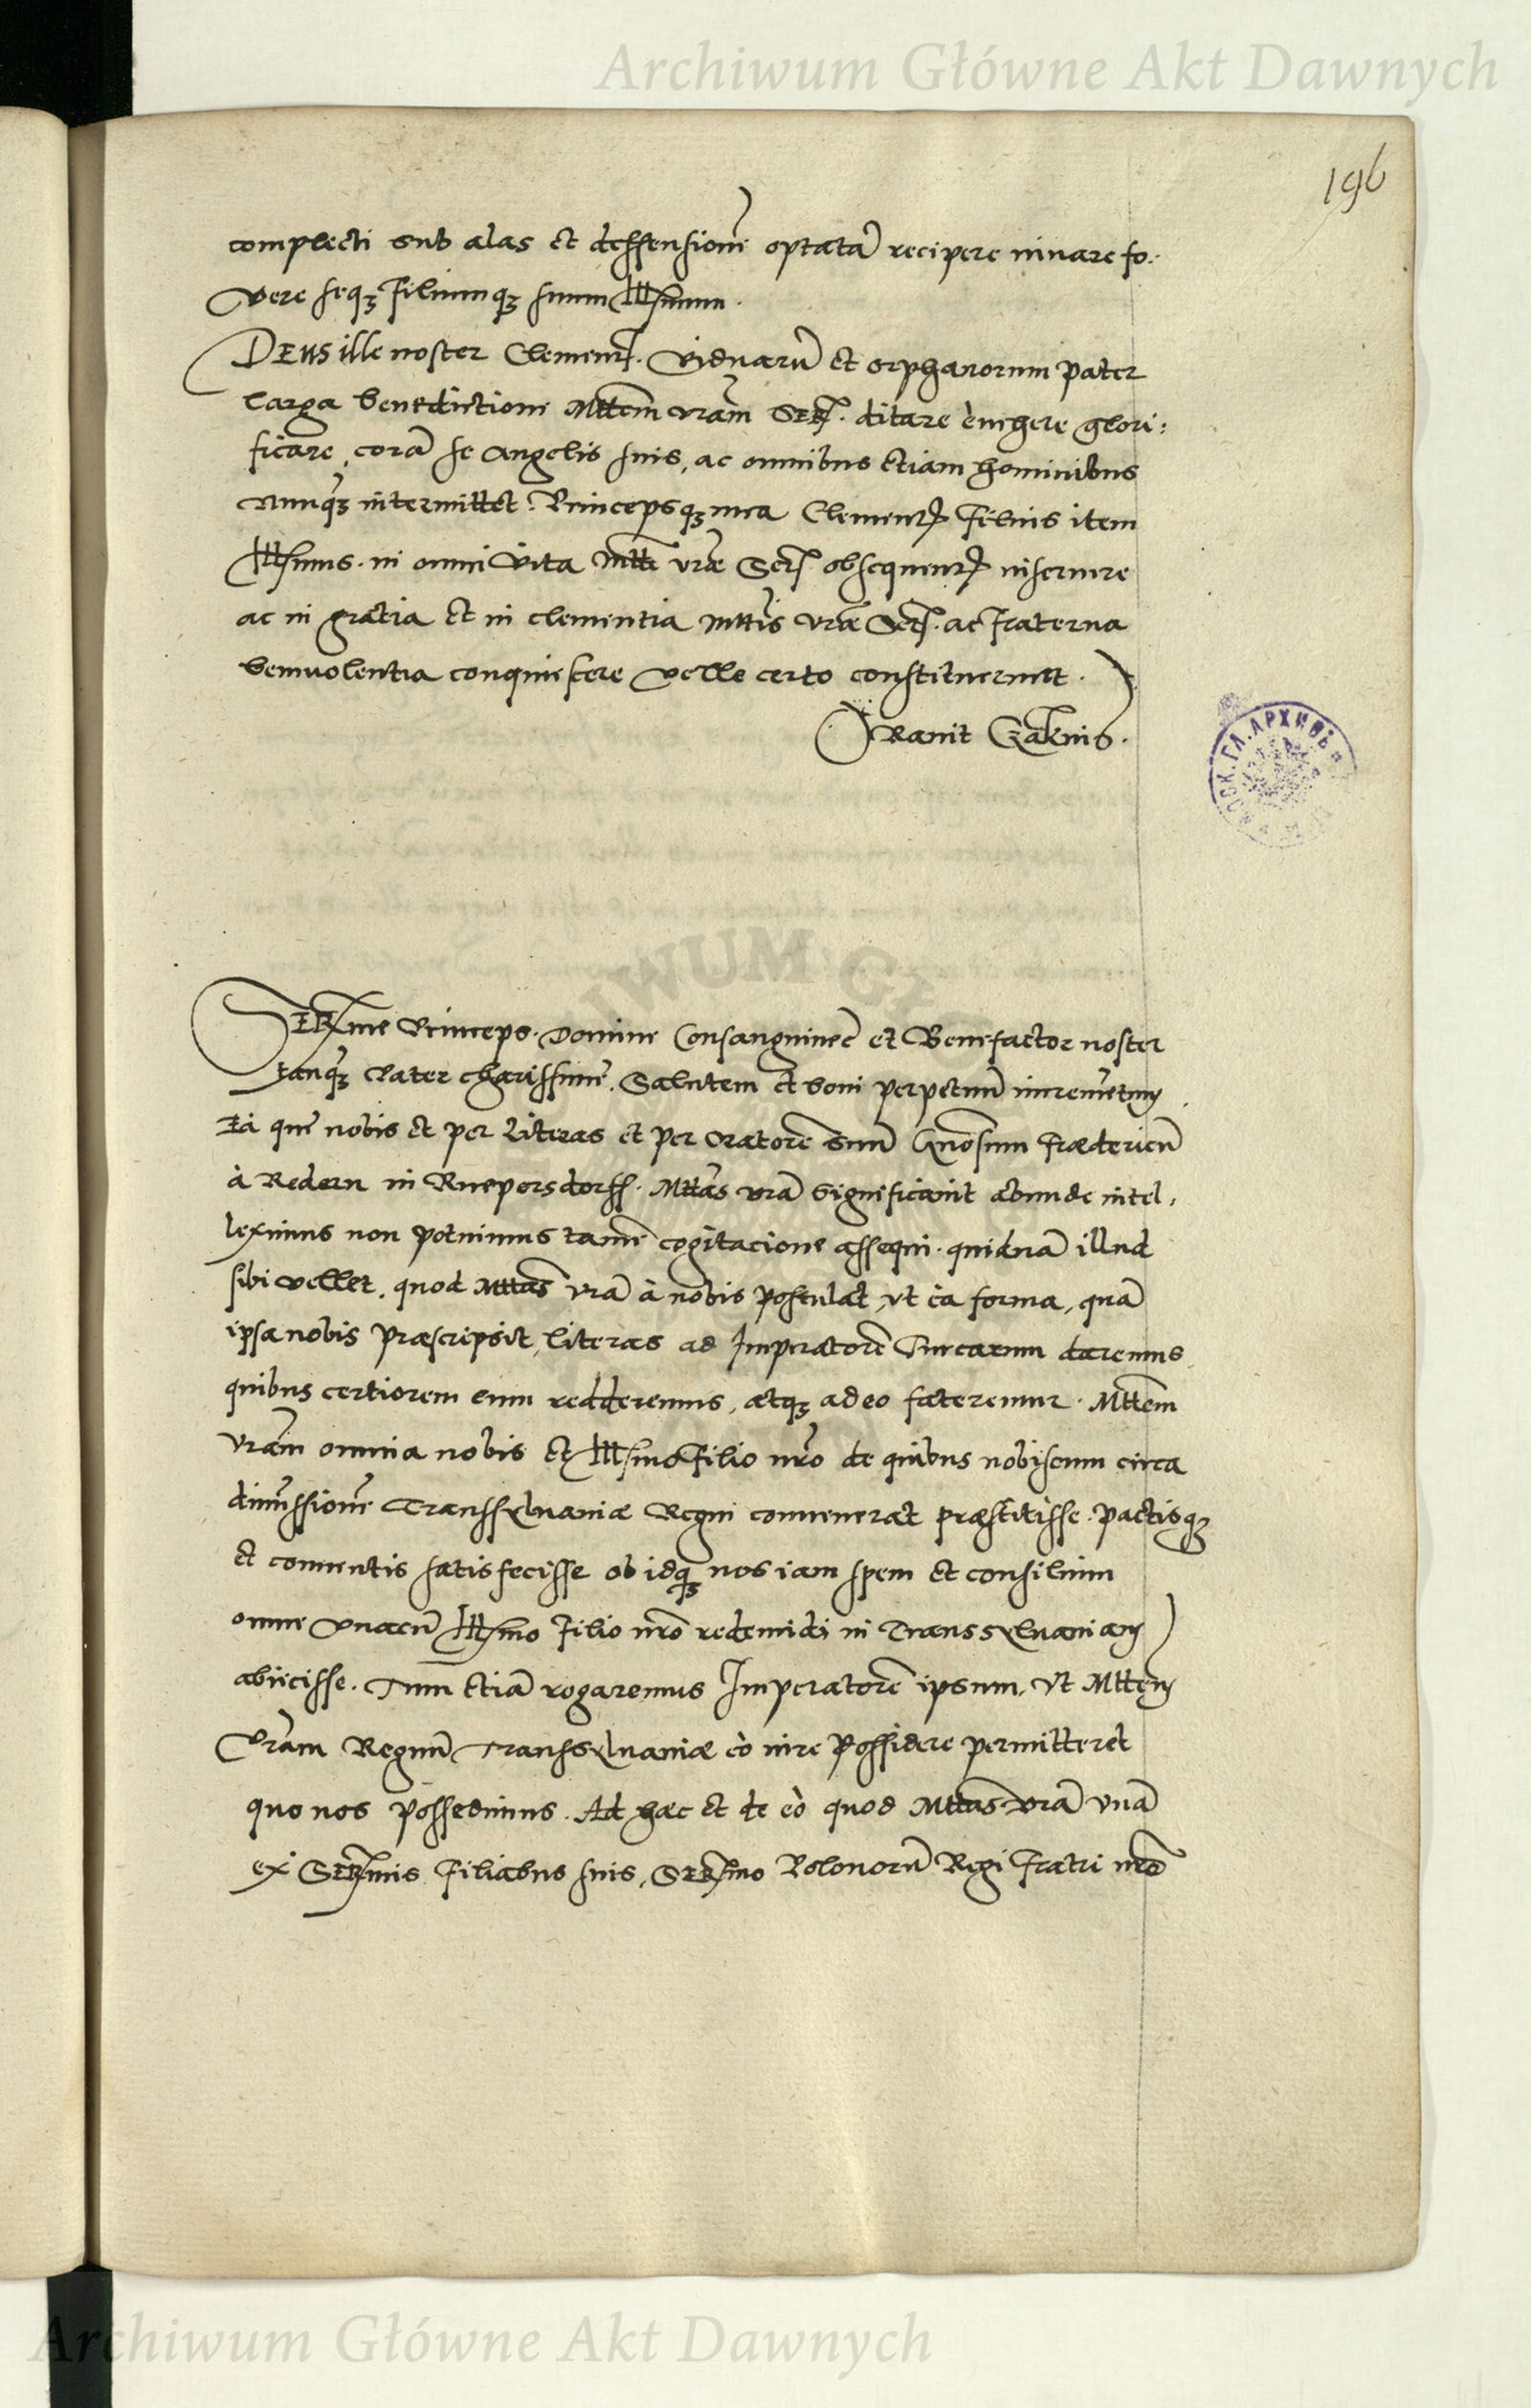 Archiwum Główne Akt Dawnych
196
complecti sub alas et deffensionē optatā recipere iuuare fo:
vere seqʒ filiumqʒ suum Illsmum.
DEus ille noster Clementſ. Viduarū et orphanorum pater
larga benedictioni Mttem vram SER. ditare euehere glori:
ficare, corā se Angelis suis, ac omnibus etiam hominibus
nunqʒ intermittet. Princepsqʒ mea Clementſ Filius item
Illsmus. in omni vita Mtti vrae Serſ obsequentſ inseruire
ac in gratia et in clementia Mttis vrae Serſ. ac fraterna
beniuolentia conquiescere velle certo constituerunt.
Orauit Czaknis.
SERme Princeps. Domine Consanguineē et Benefactor noster
tanqʒ Pater charissimē. Salutem et boni perpetuū incremētum
Ea quē nobis et per literas et per Oratorē suū Gnosum Fraedericū
à Redern in Ruepersdorff. Mttas vrā significauit abunde intel,
leximus non potuimus tamē cogitacione assequi. quidnā illud
sibi vellet. quod Mttas vrā à nobis postulat, vt eā forma, quā
ipsa nobis praescripsit, literas ad Imperatorē Turcarum daremus
quibus certiorem eum redderemus, atqʒ adeo fateremur. Mttem
vram omnia nobis et Illsmo Filio nro de quibus nobiscum circa
dimissionē Transsyluaniae Regni conuenerat praestitisse. pactisqʒ
et conuentis satisfecisse ob idqʒ nos iam spem et consilium
omne vnacū Illsmo Filio nro redeundi in Transsyluaniam
abiicisse. Tum etiā rogaremus Imperatorē ipsum, vt Mttem
Vram Regnū Transsyluaniae eò iure possidere permitteret
quo nos possedimus. Ad haec et de eò quod Mttas vrā vnā
ex SERmis Filiabus suis, SERmo Polonorū Regi Fratri nro
Archiwum Główne Akt Dawnych